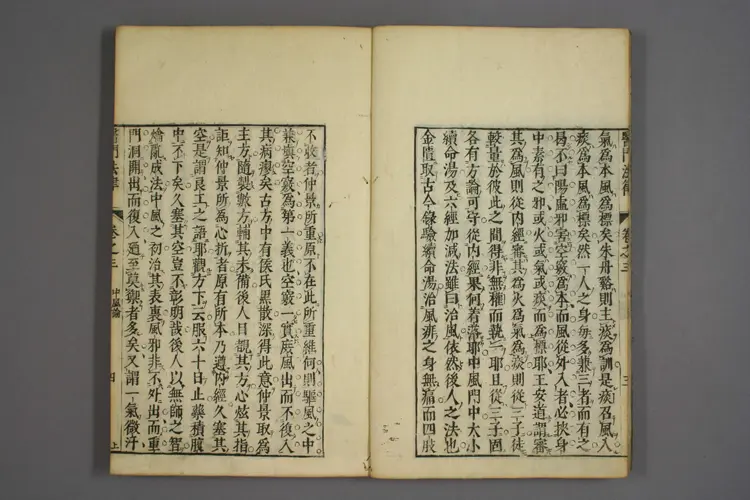 醫門法律 卷之三 三
氣爲本風爲標矣朱丹谿則主痰爲訓是痰召風入
痰爲本風爲標矣然一人之身每多兼三者而有之
曷不曰陽虛邪害空竅爲本而風從外入者必挾身
中素有之邪或火或氣或痰而爲標耶王安道謂審
其爲風則從內經審其爲火爲氣爲痰則從三子徒
較量於彼此之間得非無權而執一耶且從三子固
各有方論可守從內經果何著落耶中風門中大小
續命湯及六經加減法雖曰治風依然後人之法也
金匱取古今錄驗續命湯治風痱之身無痛而四肢
不收者仲景所重原不在此所重維何則驅風之中
兼塡空竅爲第一義也空竅一實庶風出而不復入
其病瘳矣古方中有侯氏黑散深得此意仲景取爲
主方隨製數方輔其未備後人目覩其方心炫其指
詎知仲景所爲心折者原有所本乃遵內經久塞其
空是謂良工之語耶觀方下云服六十日止藥積腹
中不下矣久塞其空豈不彰明哉後人以無師之智
繪亂成法中風之初治其表裏風邪非不外出而重
門洞開出而復入迺至莫禦者多矣又謂一氣微汗
醫門法律 卷之三 中風論 四 上